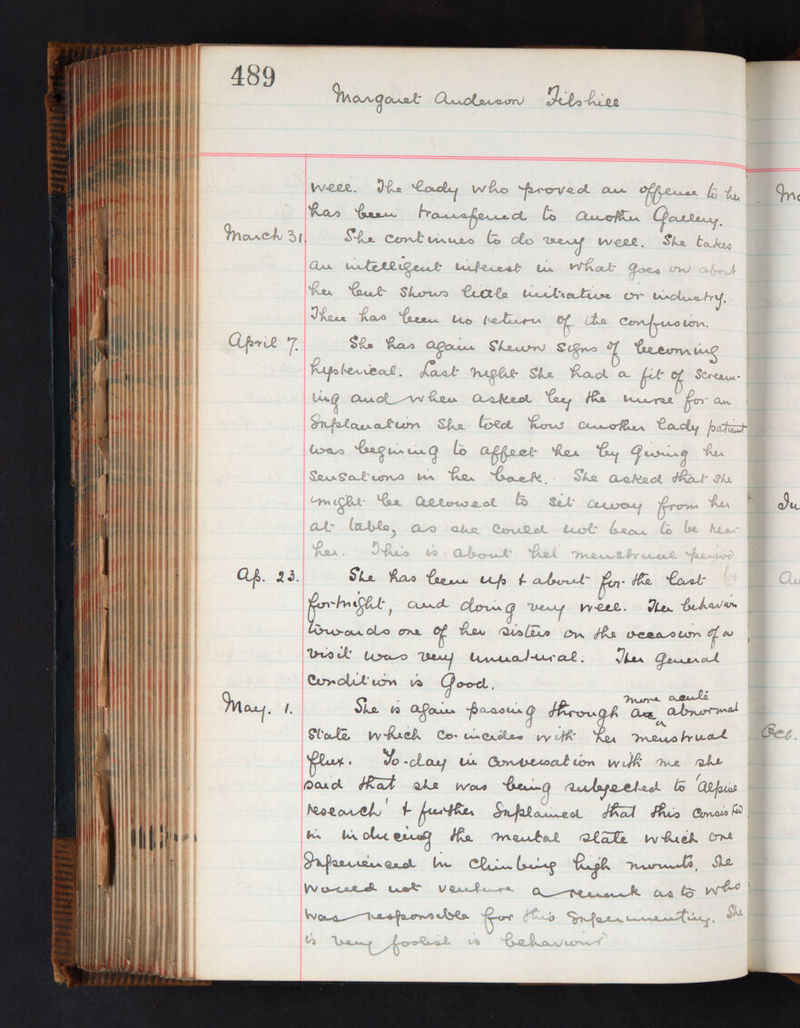 489
Margaret Anderson Tilshill
well. The lady who proved an offence to her
has been transferred to another Gallery.
March 31. She continues to do very well. She takes
an intelligent interest in what goes on about
her but shows little initiative or industry.
There has been no return of the confusion.
April 7. She has again shewn signs of becoming
hysterical. Last night she had a fit of scream-
ing and when asked by the nurse for an
explanation she told how another lady patient
was begining to affect her by giving her
sensations in her back. She asked that she
might be allowed to sit away from her
at table, as she could not bear to be near
her. This is about her menstrual period.
Ap. 23. She has been up & about for the last
fortnight, and doing very well. Her behaviour
towards one of her sisters on the occasion of a
visit was very unnatural. Her general
condition is good.
May. 1. She is again passing through a more acute abnormal
state which co-incides with her menstrual
flux. To-day in conversation with me she
said that she was being subjected to 'alpine
research' & further explained that this consisted
in inducing the mental state which one
experienced in climbing high mounts. She
would not venture a remark as to who
was responsible for this experimenting. She
is very foolish in behaviour
Oct.